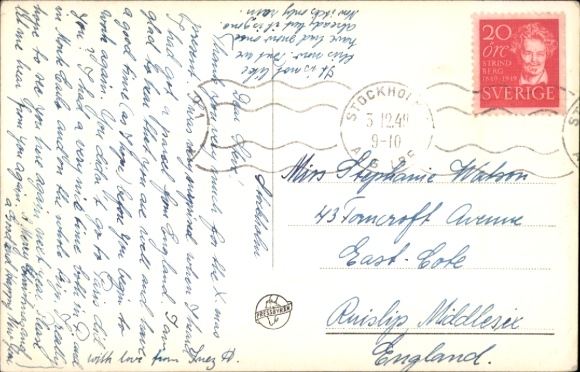 Stockholm
Dear Steph!
Thank you very much for the X-mas
present. I was so surprised when I found
I had got a parcel from England. I am
glad to hear that you are well and have
a good time (as I hope) before you begin to
work again. You didn't go to Paris did
you? I had a very nice time both in Paris and
in Monte Carlo and on the whole trip. I really
hope to see you here again next year. Please
let me hear from you again. A Merry Christmas and
a good and happy New Year
with love from Inez D.
It is not like
this now. But we
have had snow once
already but it is gone.
Now it's only rain.
20
öre
STRIND
BERG
1849-1949
SVERIGE
STOCKHOLM
3.12.49
9-10
PRESSBYRÅN
Miss Stephanie Watson
43 Torncroft Avenue
East-Cote
Ruislip Middlesex
England.